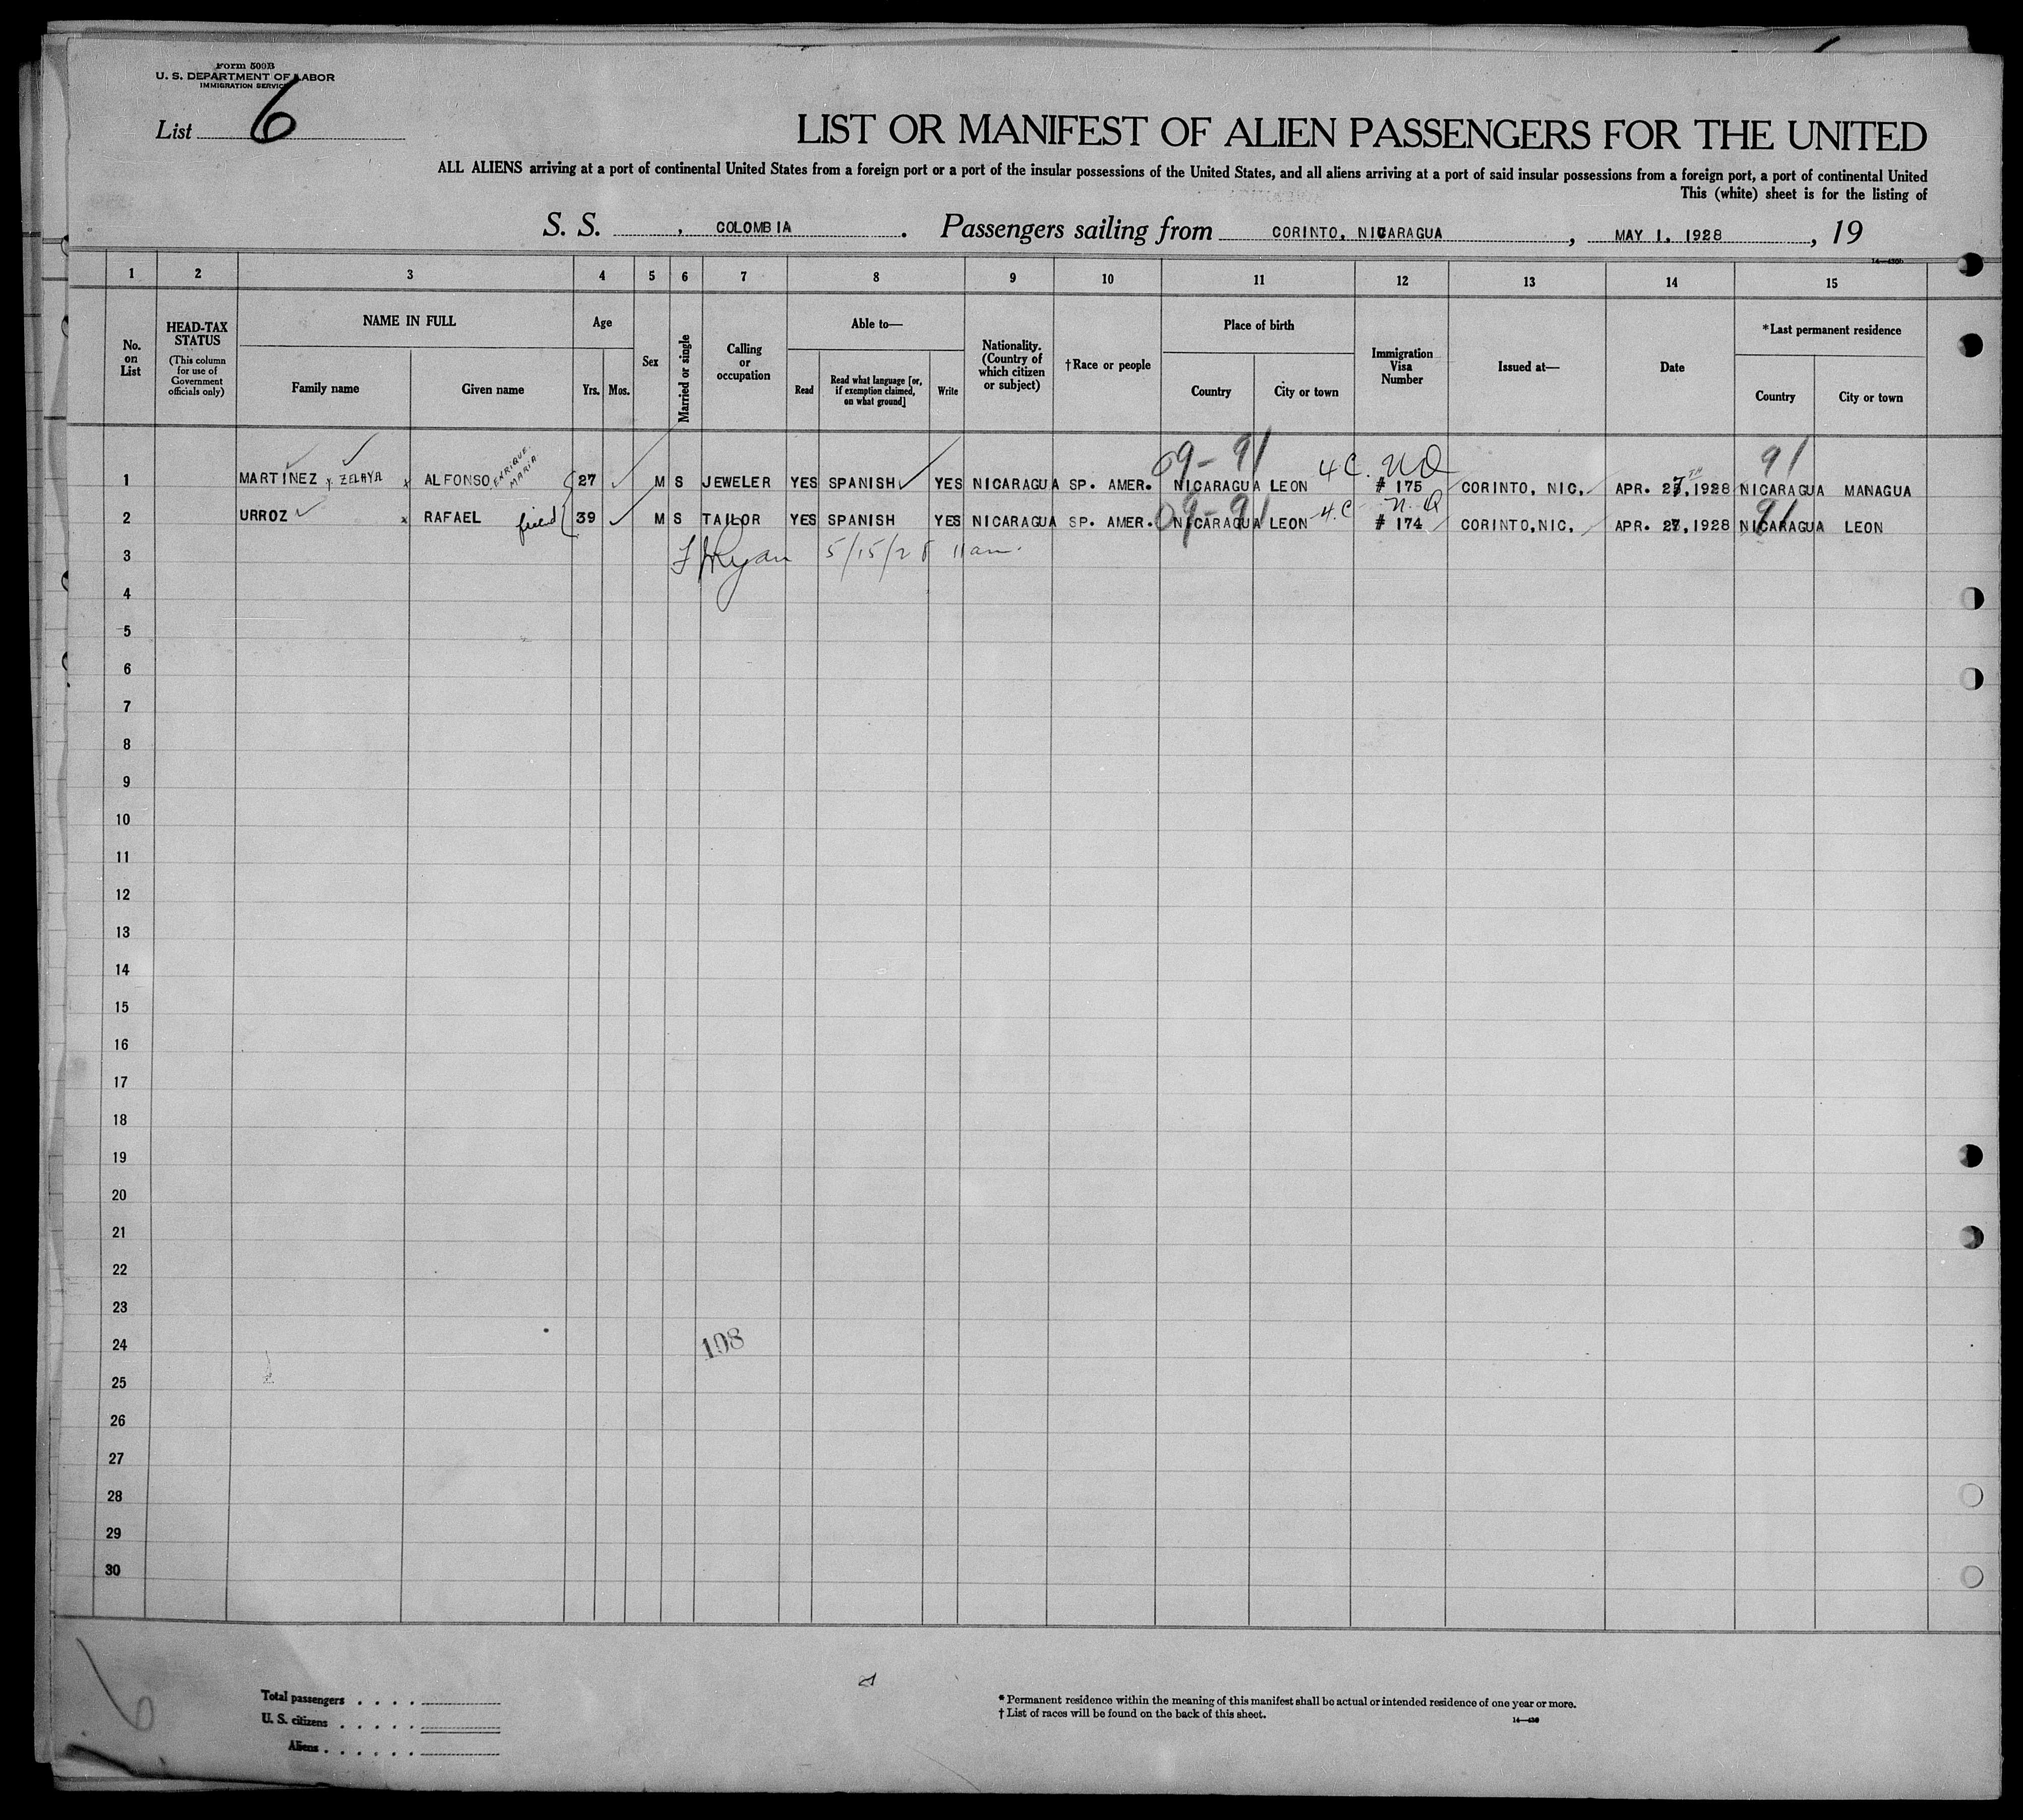 Form 500B
U. S. DEPARTMENT OF LABOR
IMMIGRATION SERVICE
List 6
LIST OR MANIFEST OF ALIEN PASSENGERS FOR THE UNITED
ALL ALIENS arriving at a port of continental United States from a foreign port or a port of the insular possessions of the United States, and all aliens arriving at a port of said insular possessions from a foreign port, a port of continental United
This (white) sheet is for the listing of
S. S. , COLOMBIA . Passengers sailing from CORINTO, NICARAGUA , MAY 1, 1928 , 19
1 2 3 4 5 6 7 8 9 10 11 12 13 14 15
No. on List
HEAD-TAX STATUS
(This column for use of Government officials only)
NAME IN FULL
Family name
Given name
Age
Yrs.
Mos.
Sex
Married or single
Calling or occupation
Able to—
Read
Read what language [or, if exemption claimed, on what ground]
Write
Nationality. (Country of which citizen or subject)
†Race or people
Place of birth
Country
City or town
Immigration Visa Number
Issued at—
Date
*Last permanent residence
Country
City or town
09-91 4C. NQ 91
1 MARTINEZ y ZELAYA x ALFONSO ENRIQUE MARIA 27 M S JEWELER YES SPANISH YES NICARAGUA SP. AMER. NICARAGUA LEON # 175 CORINTO, NIC. APR. 27TH, 1928 NICARAGUA MANAGUA
09-91 4.C N.Q 91
2 URROZ x RAFAEL friend 39 M S TAILOR YES SPANISH YES NICARAGUA SP. AMER. NICARAGUA LEON # 174 CORINTO,NIC. APR. 27,1928 NICARAGUA LEON
3 Ryan 5/15/28 11am.
4
5
6
7
8
9
10
11
12
13
14
15
16
17
18
19
20
21
22
23
24 108
25
26
27
28
29
30
6
Total passengers . . . .
U. S. citizens . . . . .
Aliens . . . . . .
* Permanent residence within the meaning of this manifest shall be actual or intended residence of one year or more.
† List of races will be found on the back of this sheet.